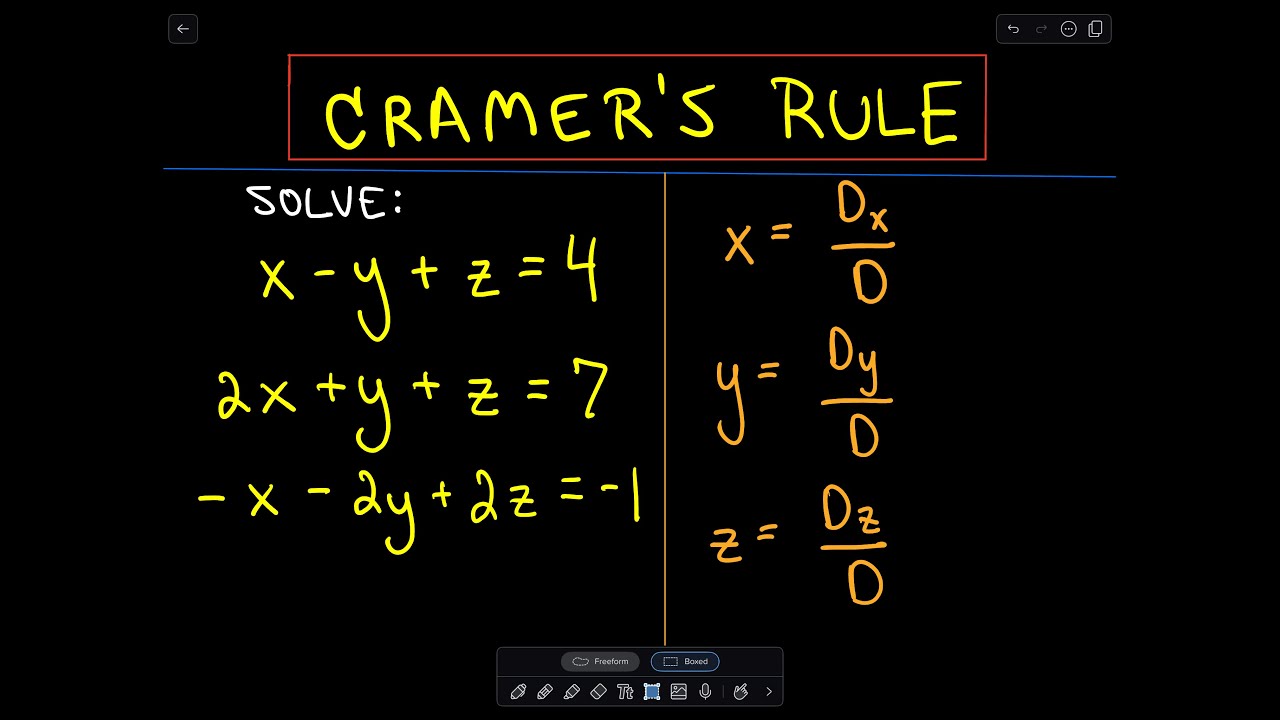 CRAMER'S RULE
SOLVE:
x - y + z = 4
2x + y + z = 7
- x - 2y + 2z = -1
x = Dx / D
y = Dy / D
z = Dz / D
Freeform Boxed
Tt